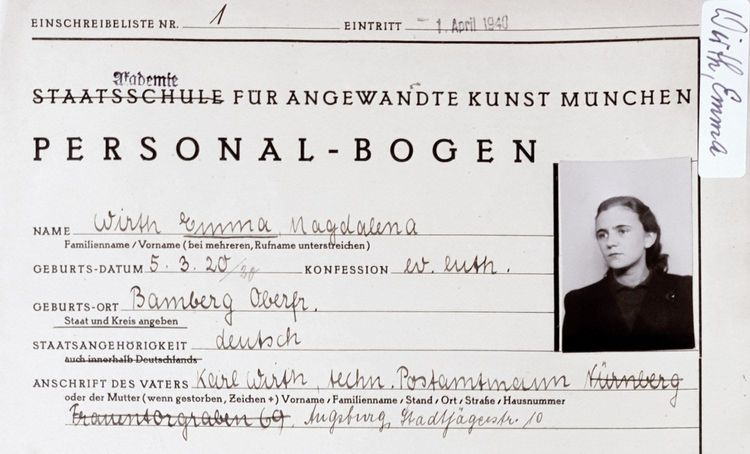 EINSCHREIBELISTE NR. 1 EINTRITT – 1. April 1940
Wirth, Emma
Akademie
STAATSSCHULE FÜR ANGEWANDTE KUNST MÜNCHEN
PERSONAL-BOGEN
NAME Wirth Emma, Magdalena
Familienname / Vorname (bei mehreren, Rufname unterstreichen)
GEBURTS-DATUM 5.3.20/20 KONFESSION ev. luth.
GEBURTS-ORT Bamberg Oberfr.
Staat und Kreis angeben
STAATSANGEHÖRIGKEIT deutsch
auch innerhalb Deutschlands
ANSCHRIFT DES VATERS Karl Wirth, techn. Postamtmann Nürnberg
oder der Mutter (wenn gestorben, Zeichen +) Vorname / Familienname / Stand / Ort / Straße / Hausnummer
Frauentorgraben 69. Augsburg, Stadtjägerstr. 10